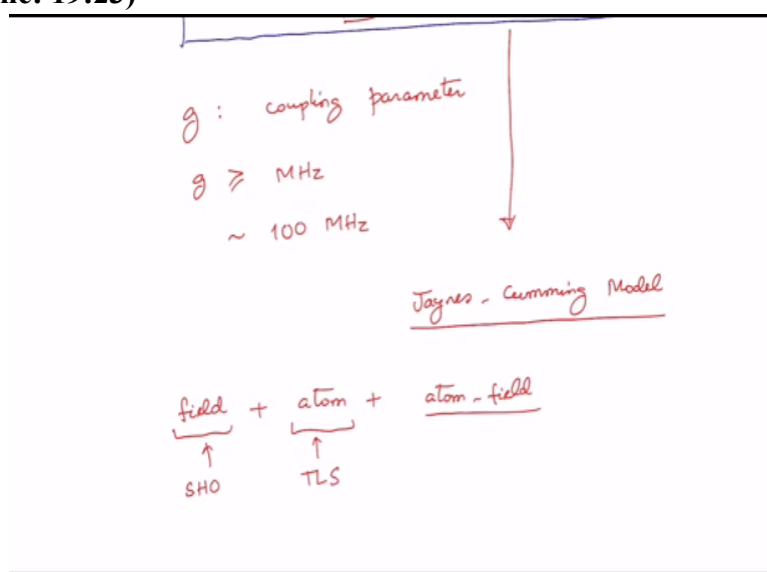 g : coupling parameter
g ⩾ MHz
~ 100 MHz
Jaynes - Cumming Model
field + atom + atom - field
SHO TLS